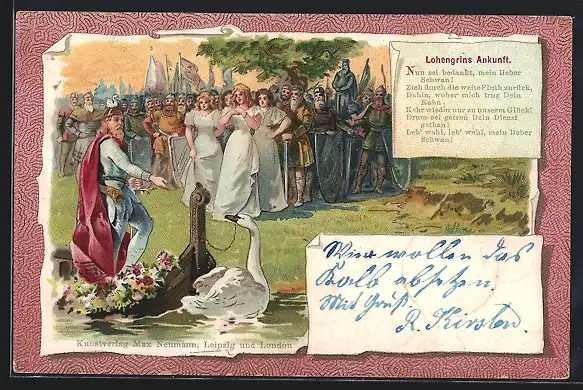 Lohengrins Ankunft.
Nun sei bedankt, mein lieber
Schwan!
Zieh durch die weite Fluth zurück,
Dahin, woher mich trug Dein
Kahn,
Kehr wieder nur zu unserm Glück!
Drum sei getreu Dein Dienst
gethan!
Leb' wohl, leb' wohl, mein lieber
Schwan!
Wir wollen das
Kalb absetzen.
Mit Gruß
R. Kirsten.
Kunstverlag Max Neumann, Leipzig und London